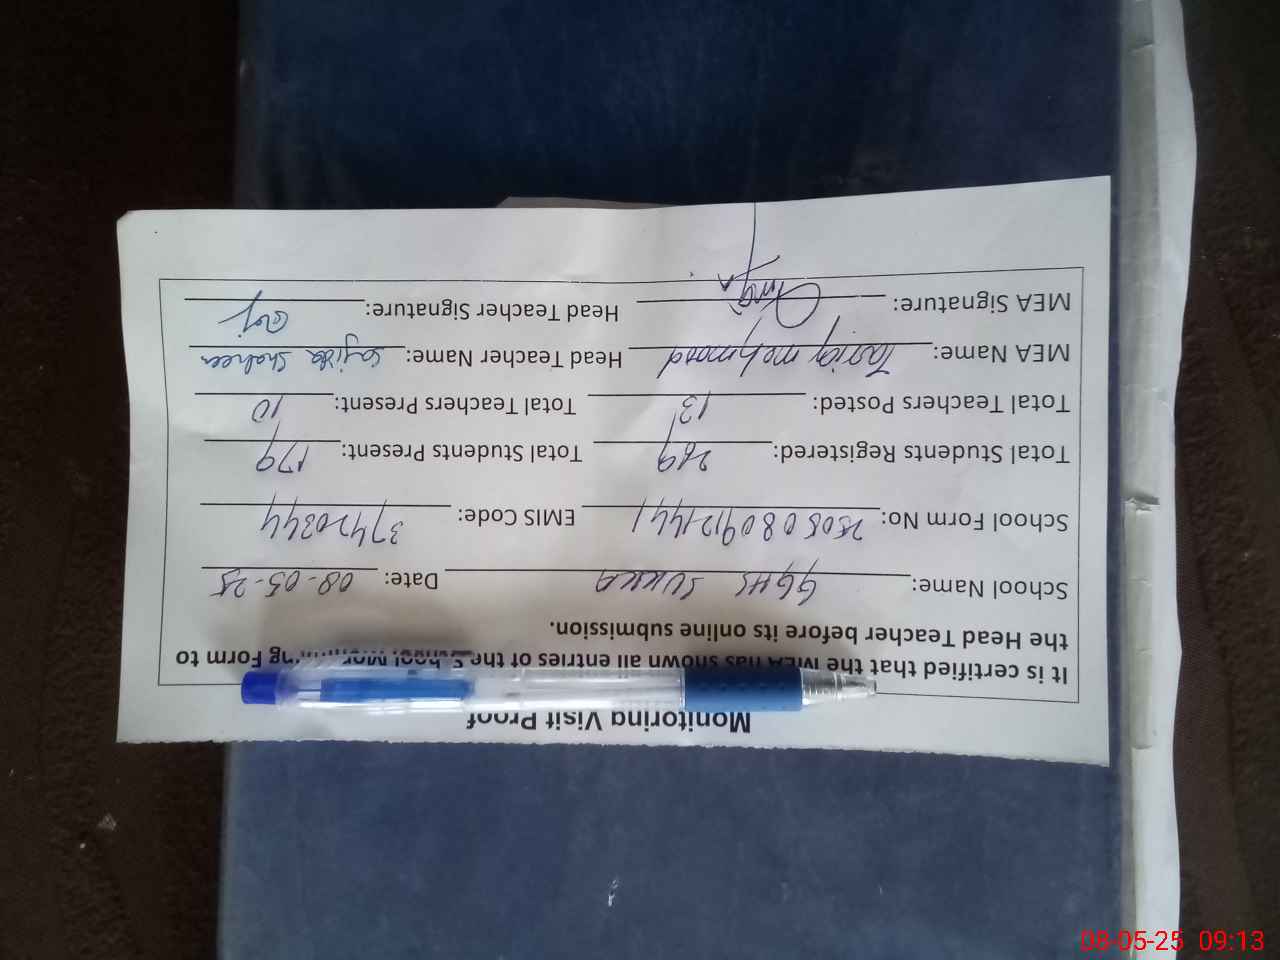 Monitoring Visit Proof
It is certified that the MEA has shown all entries of the School Monitoring Form to
the Head Teacher before its online submission.
School Name: GGHS SUKKA Date: 08-05-25
School Form No: 25050809121441 EMIS Code: 37420344
Total Students Registered: 269 Total Students Present: 179
Total Teachers Posted: 13 Total Teachers Present: 10
MEA Name: Tariq mehmood Head Teacher Name: Sajida Shaheen
MEA Signature: Head Teacher Signature:
08-05-25 09:13